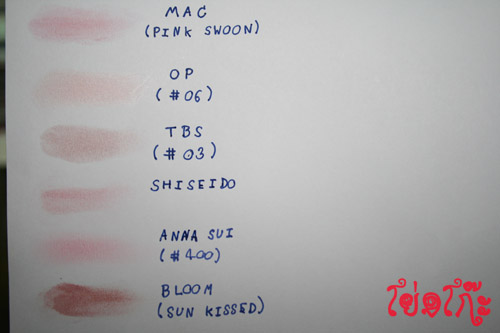 MAC
(PINK SWOON)
OP
(#06)
TBS
(#03)
SHISEIDO
ANNA SUI
(#400)
BLOOM
(SUN KISSED)
โย่วโก๊ะ